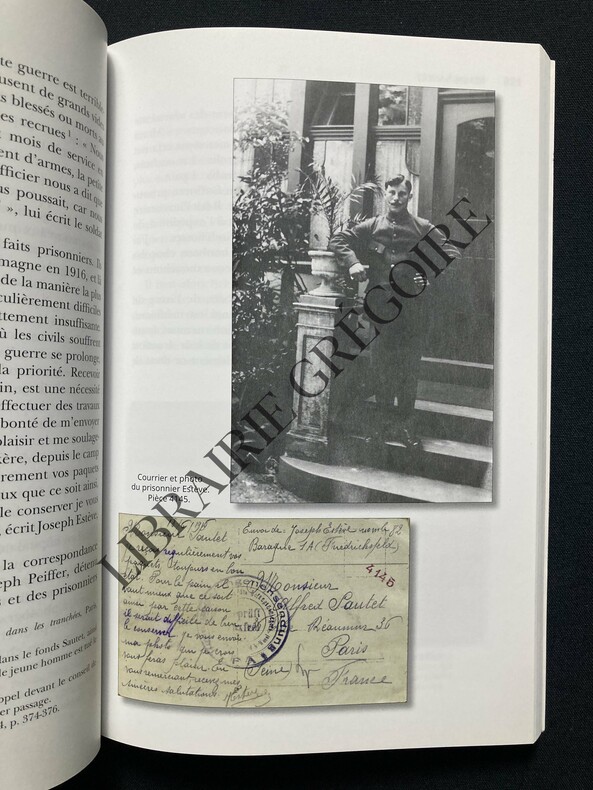 te guerre est terrible
usent de grands vides
s blessés ou morts au
es recrues¹ : « Nous
mois de service en
ent d'armes, la petite
fficier nous a dit que
as poussait, car nous
», lui écrit le soldat
faits prisonniers. Ils
magne en 1916, et là
de la manière la plus
culièrement difficiles
ttement insuffisante.
ù les civils souffrent
guerre se prolonge,
la priorité. Recevoir
in, est une nécessité
effectuer des travaux
bonté de m'envoyer
plaisir et me soulage-
kère, depuis le camp
èrement vos paquets
ux que ce soit ainsi.
le conserver je vous
écrit Joseph Estève.
la correspondance
eph Peiffer, détenu
s et des prisonniers
dans les tranchées, Paris,
dans le fonds Sautet, ainsi
le jeune homme est tué le
ppel devant le conseil de
er passage.
4, p. 374-376.
LIBRAIRIE GRÉGOIRE
Courrier et photo
du prisonnier Estève.
Pièce 4145.
Monsieur Sautet
régulièrement vos
paquets toujours en bon
état. Pour le pain il
vaut mieux que ce soit
ainsi par cette saison
il serait difficile de bien
le conserver je vous envoie
ma photo
vous feras plaisir En
vous remerciant recevez mes
sincères salutations. Estève
Envoi de: Joseph Estève
Baraque 1A (Friedrichsfeld)
4145
Monsieur
Alfred Sautet
Réaumur 36
Paris
(Seine)
France